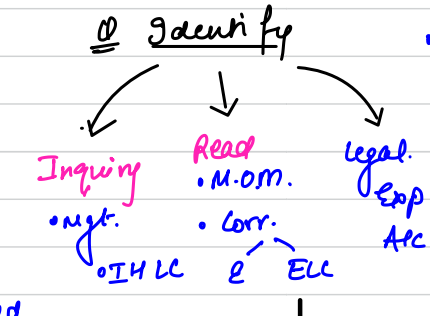 ① Identify
Inquiry
• Mgt.
• IHLC
Read
• M.O.M.
• Corr.
E ELC
Legal.
Exp
A/C